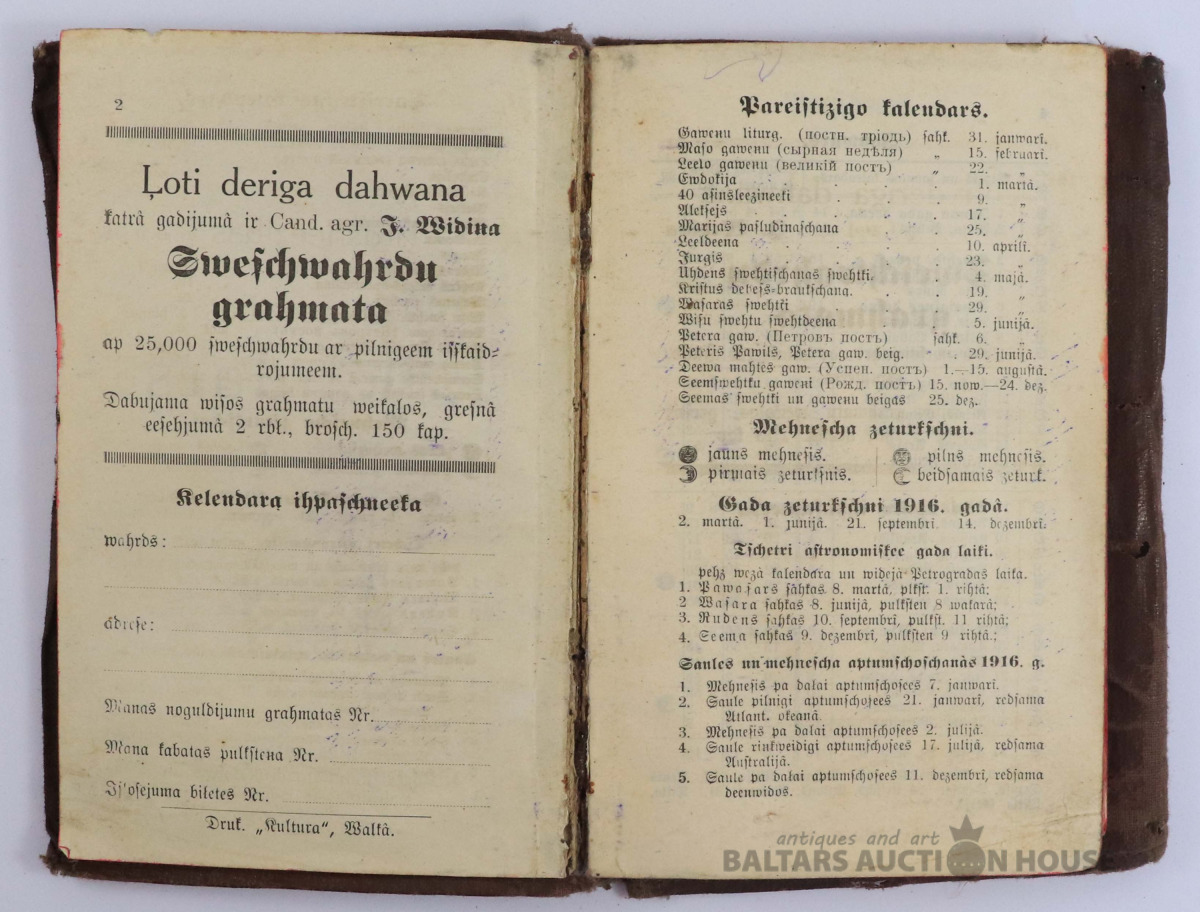 2
Ļoti deriga dahwana
katrâ gadijumâ ir Cand. agr. J. Widiņa
Sweſchwahrdu
grahmata
ap 25,000 ſweſchwahrdu ar pilnigeem iſſkaid-
rojumeem.
Dabujama wiſos grahmatu weikalos, greſnâ
eeſehjumâ 2 rbļ., broſch. 150 kap.
Kelendara ihpaſchneeka
wahrds:
adreſe:
Manas noguldijumu grahmatas Nr.
Mana kabatas pulkſteņa Nr.
Druk. „Kultura“, Walkâ.
Pareiſtizigo kalendars.
Gaweņu liturg. (постн. тріодь) ſahk. 31. janwarî.
Maſo gaweņu (сырная недѣля) „ 15. februarî.
Leelo gaweņu (великій постъ) „ 22. „
Ewdokija . . . . . 1. martâ.
40 aſinsleezineeki . . . 9. „
Alekſejs . . . . . 17. „
Marijas paſludinaſchana . . 25. „
Leeldeena . . . . 10. aprilî.
Jurgis . . . . . 23. „
Uhdens ſwehtiſchanas ſwehtki. . 4. majâ.
Kriſtus debeſs-braukſchana. . . 19. „
Waſaras ſwehtki . . . 29. „
Wiſu ſwehtu ſwehtdeena . . 5. junijâ.
Petera gaw. (Петровъ постъ) ſahk. 6. „
Peteris Pawils, Petera gaw. beig. . 29. junijâ.
Deewa mahtes gaw. (Успен. постъ) 1.—15. auguſtâ.
Seemſwehtku gaweņi (Рожд. постъ) 15. now.—24. dez.
Seemas ſwehtki un gaweņu beigas 25. dez.
Mehneſcha zeturkſchņi.
jauns mehneſis. pilns mehneſis.
pirmais zeturkſnis. beidſamais zeturk.
Gada zeturkſchņi 1916. gadâ.
2. martâ. 1. junijâ. 21. ſeptembrî 14. dezembrî.
Tſchetri aſtronomiſkee gada laiki.
pehz wezâ kalendara un widejâ Petrogradas laika.
1. Pawaſars ſahkas 8. martâ, plkſt. 1. rihtâ;
2 Waſara ſahkas 8. junijâ, pulkſten 8 wakarâ;
3. Rudens ſahkas 10. ſeptembrî, pulkſt. 11 rihtâ;
4. Seema ſahkas 9. dezembrî, pulkſten 9 rihtâ.;
Saules un mehneſcha aptumſchoſchanâs 1916. g.
1. Mehneſis pa daļai aptumſchoſees 7. janwarî.
2. Saule pilnigi aptumſchoſees 21. janwarî, redſama
Atlant. okeanâ
3. Mehneſis pa daļai aptumſchoſees 2. julijâ.
4. Saule riņkweidigi aptumſchoſees 17. julijâ, redſama
Auſtralijâ.
5. Saule pa daļai aptumſchoſees 11. dezembrî, redſama
deenwidos.
antiques and art
BALTARS AUCTION HOUSE